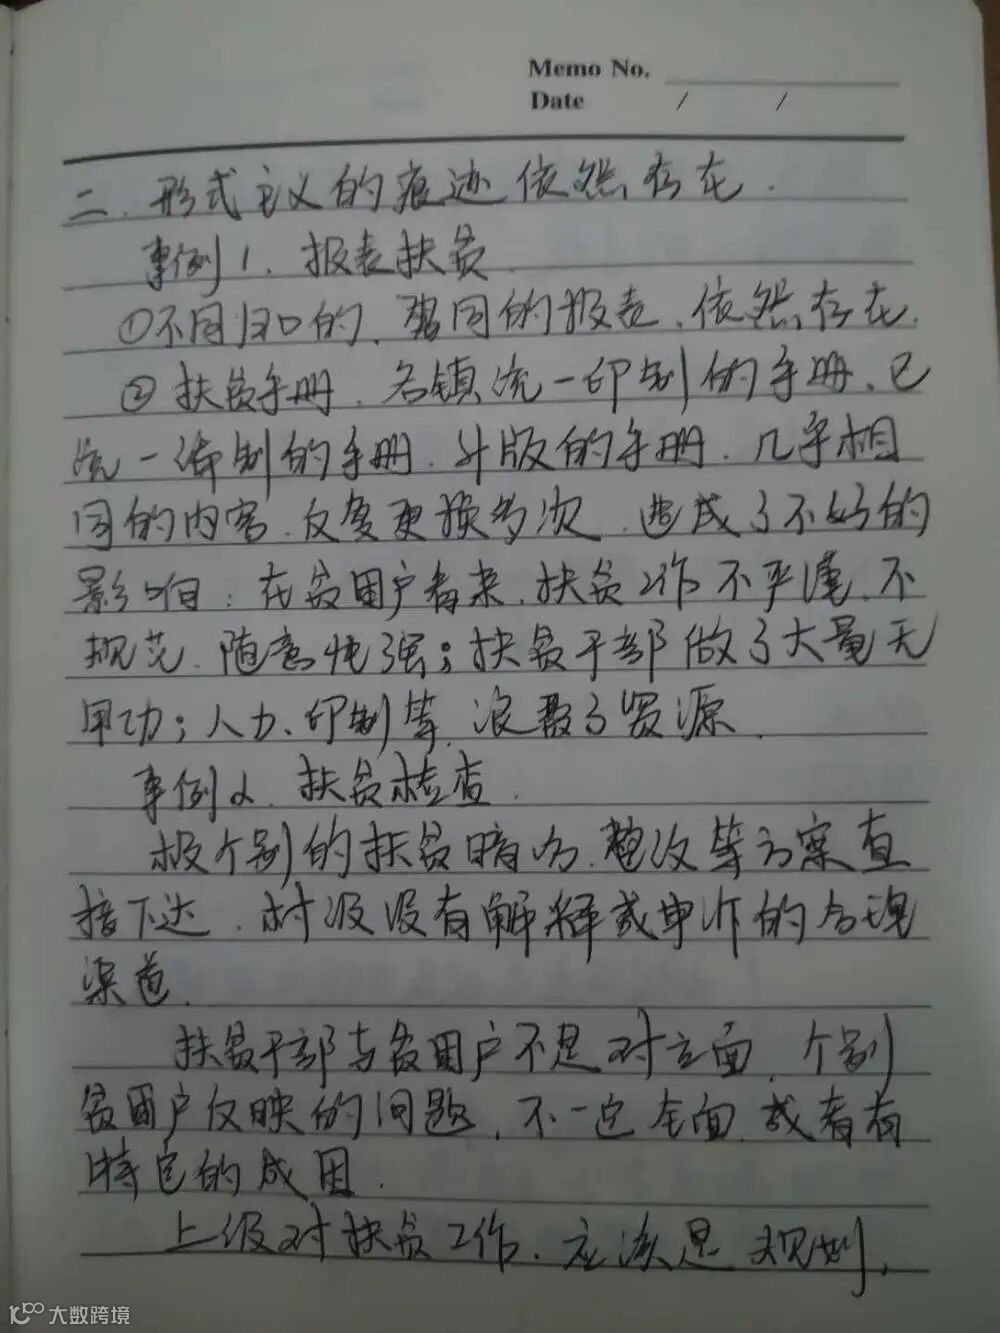 Memo No.
Date / /
二、形式主义的痕迹依然存在.
事例1、报表扶贫
①不同归口的、雷同的报表、依然存在.
②扶贫手册、各镇统一印制的手册、已
统一印制的手册、升版的手册、几乎相
同的内容、反复更换多次、造成了不好的
影响：在贫困户看来、扶贫工作不严谨、不
规范、随意性强；扶贫干部做了大量无
用功；人力、印制等、浪费了资源.
事例2、扶贫检查.
极个别的扶贫暗访、整改等方案直
接下达、村级没有解释或申诉的合理
渠道.
扶贫干部与贫困户不是对立面、个别
贫困户反映的问题、不一定全面、或者有
特定的成因.
上级对扶贫工作、应该是规划、
大数跨境